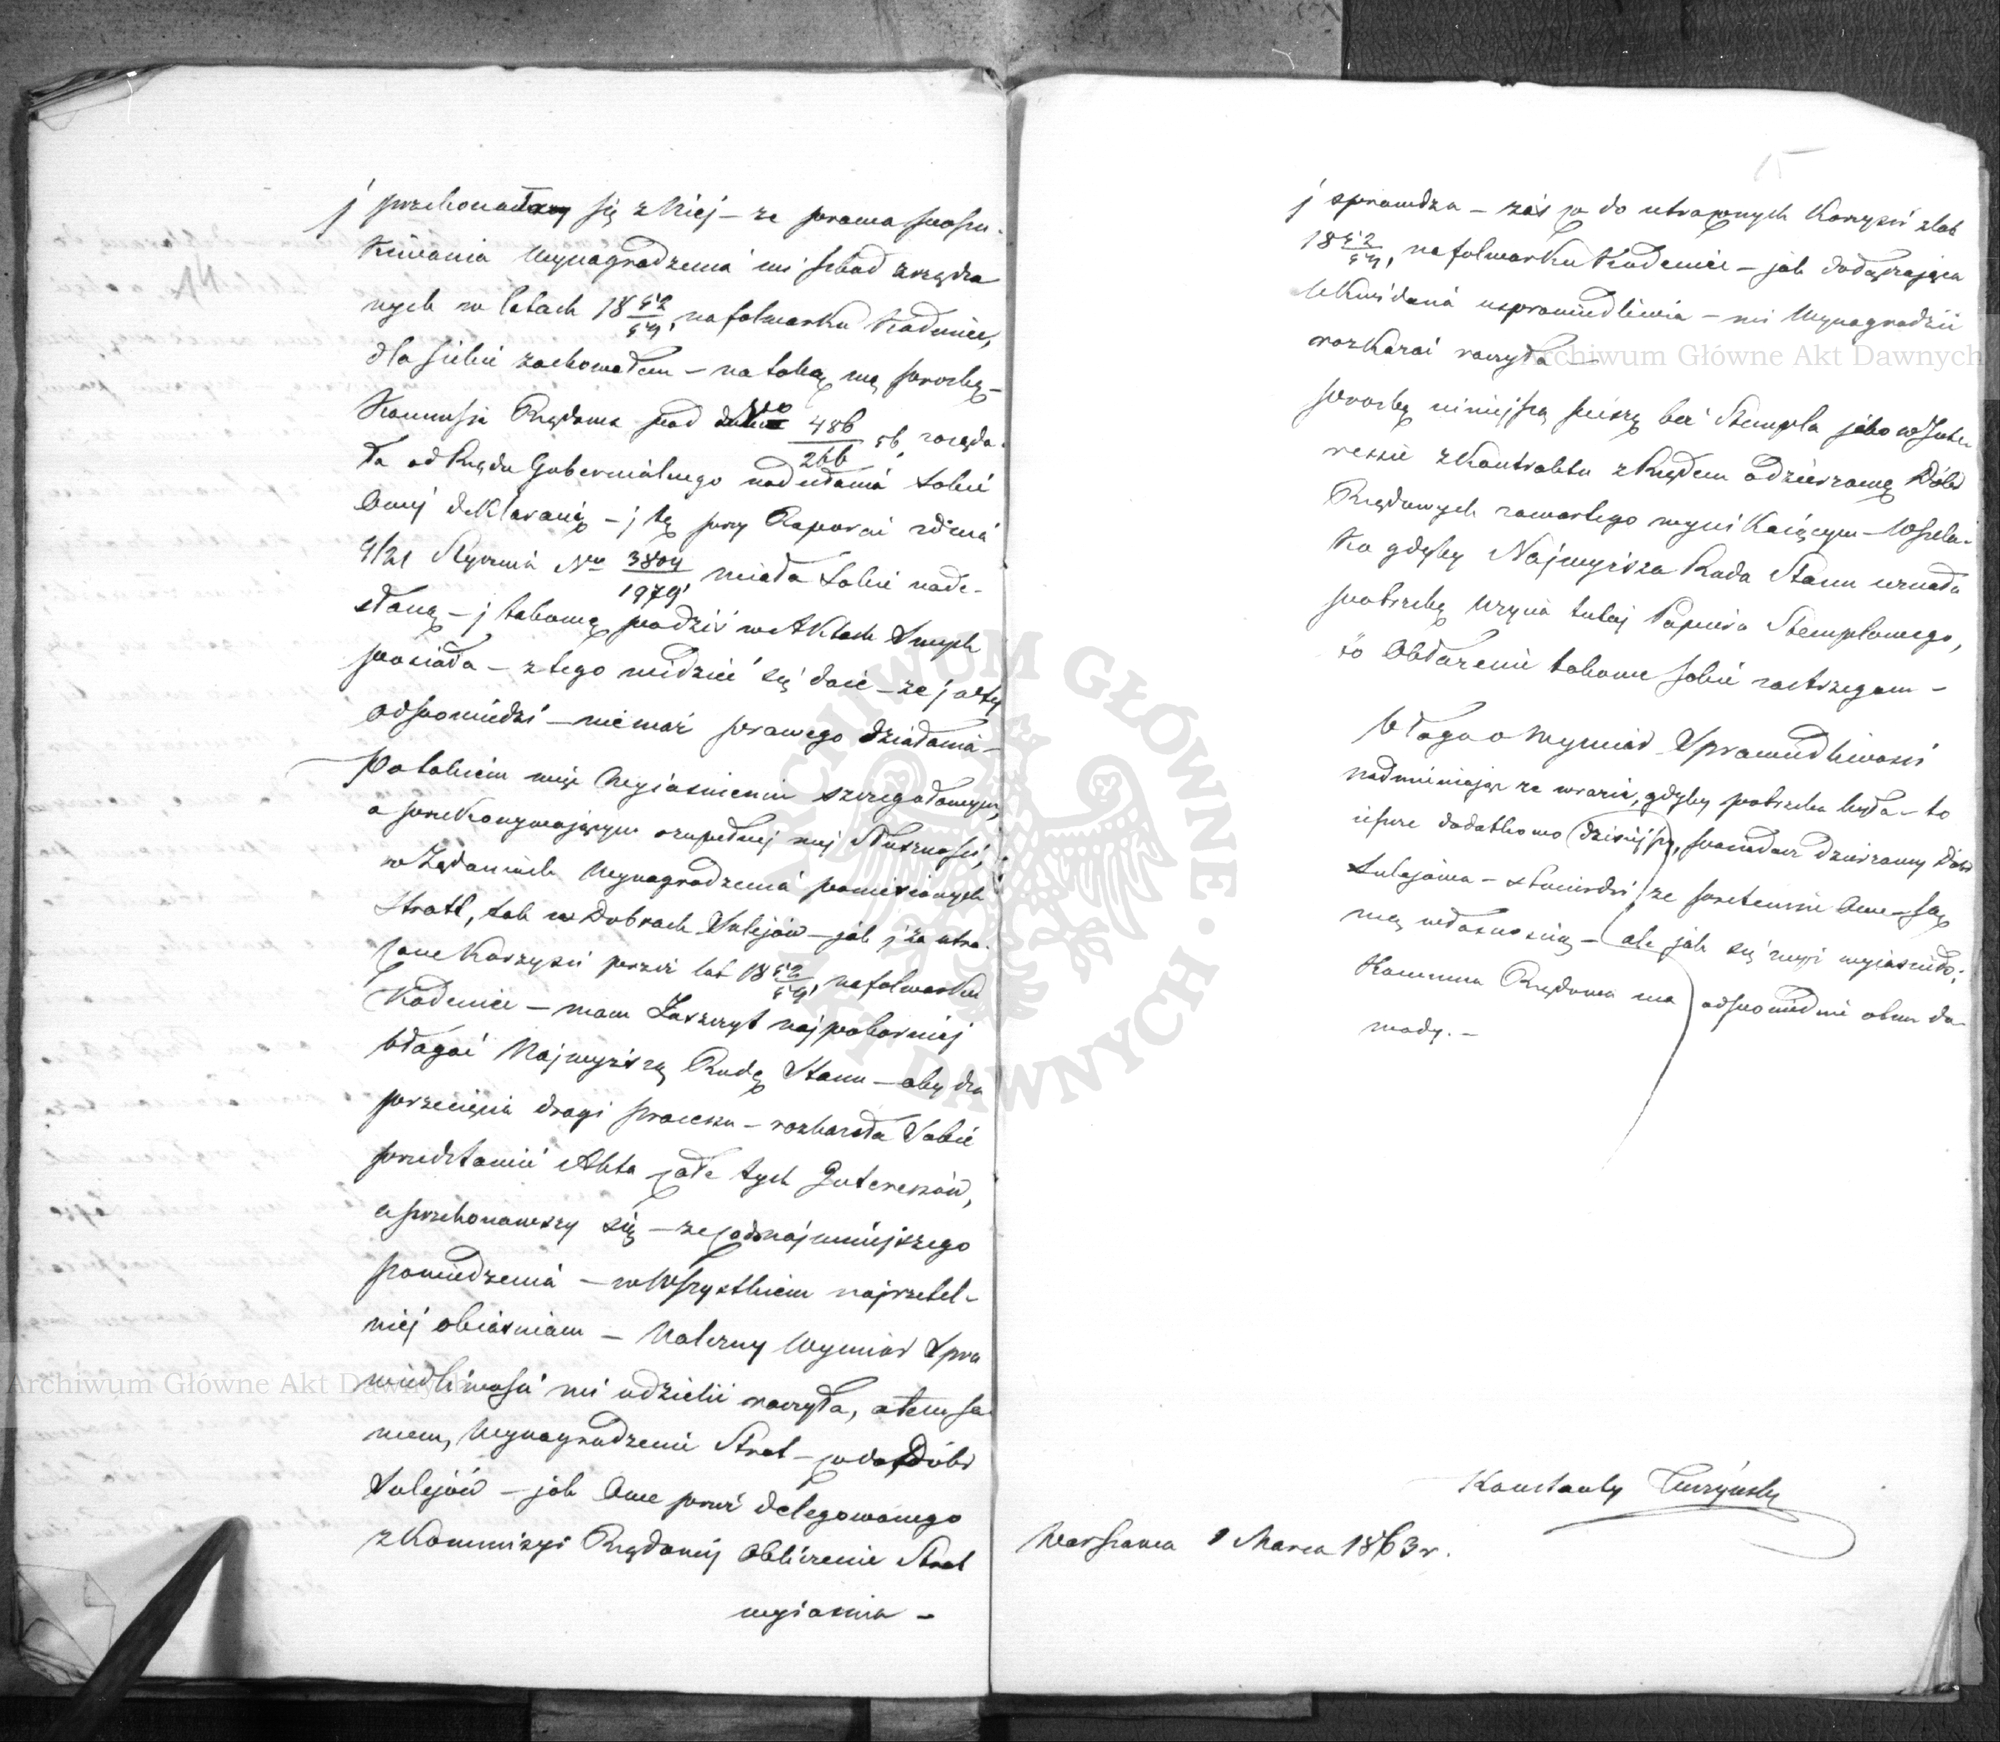 j przekonawszy się z Niej – że prawa poszu-
kiwania Wynagrodzenia mi szkód zrządzo
nych w latach 18 52/54, na folwarku Kadenice,
dla siebie zachowałem – na taką mą prośbę –
Kommissja Rządowa pod 486/266 56, zażąda-
ła od Rządu Gubernialnego nadesłania sobie
Owej deklaracji – j tę przy Raporcie z dnia
9/21 Stycznia No 3804/1979, miała sobie nade-
słaną – j takową podziś w Aktach Swych
posiada – z tego widzieć się daie – że j ta
odpowiedź – nie ma prawego działania –
Po takiem więc Wyjaśnieniu szczegółowym,
a przekonywającym o zupełnej mej Słuszności,
w Żądaniach Wynagrodzenia poniesionych
Strat, tak w Dobrach Sulejów – jak j za utra-
cone Korzyści przez lat 18 52/54, na folwarku
Kadenice – mam Zaszczyt najpokorniej
błagać Najwyższą Radę Stanu – aby dla
przecięcia drogi processu – rozkazała Sobie
przedstawić Akta całe tych Interessów,
a przekonawszy się – że co do najmniejszego
powiedzenia – w Wszystkiem najrzetel-
niej obiaśniam – Należny Wymiar Spra
wiedliwości mi udzielić raczyła, a tem sa-
mem, Wynagrodzenie Strat – co do Dóbr
Sulejów – jak Owe przez delegowanego
z Kommissyi Rządowej Obliczenie Strat
wyiaśnia –
15
j sprawdza – zaś co do utraconych Korzyści z lat
18 52/54, na folwarku Kadenice – jak dołączająca
Likwidacia usprawiedliwia – mi Wynagrodzić
rozkazać raczyła –
prośbę niniejszą piszę bez Stempla jako w Inte
ressie z Kontraktu z Rządem o dzierżawę Dóbr
Rządowych zawartego wynikającym – Wszela-
ko gdyby Najwyższa Rada Stanu uznała
potrzebę użycia tutaj Papieru Stemplowego,
to Obłożenie takowe sobie zastrzegam –
Błaga o wymiar Sprawiedliwości
nadmieniając że w razie, gdyby potrzeba była – to
ieszcze dodatkowo dzisiejszy, posiadacz dzierżawy Dóbr
Sulejowa – stwierdzi że pretensie Owe są
mą własnością – ale jak się wyżi wyiaśniło,
Kommissia Rządowa ma odpowiednie aktu do
wody. –
Konstanty Turzyński
Warszawa 1 Marca 1863 r.
Archiwum Główne Akt Dawnych
Archiwum Główne Akt Dawnych
ARCHIWUM GŁÓWNE AKT DAWNYCH